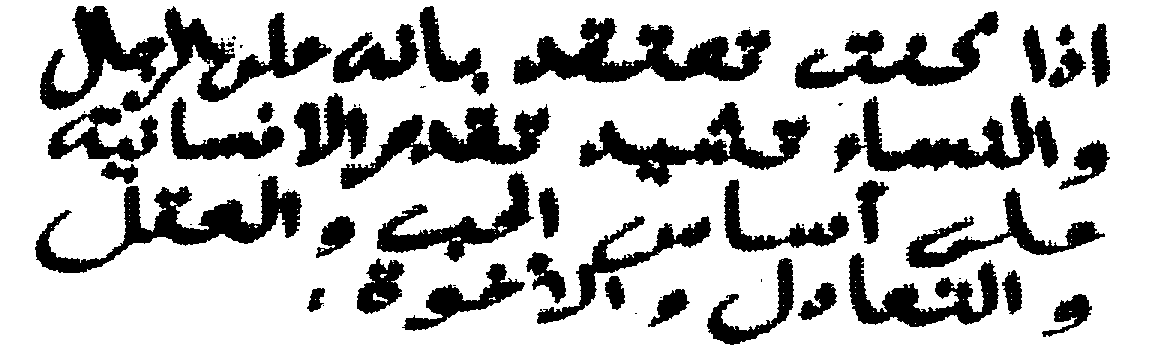 اذا كنت تعتقد بانه على الرجال
والنساء تشييد تقدم الانسانية
على أساس الحب و العقل
و التعادل و الأخوة .